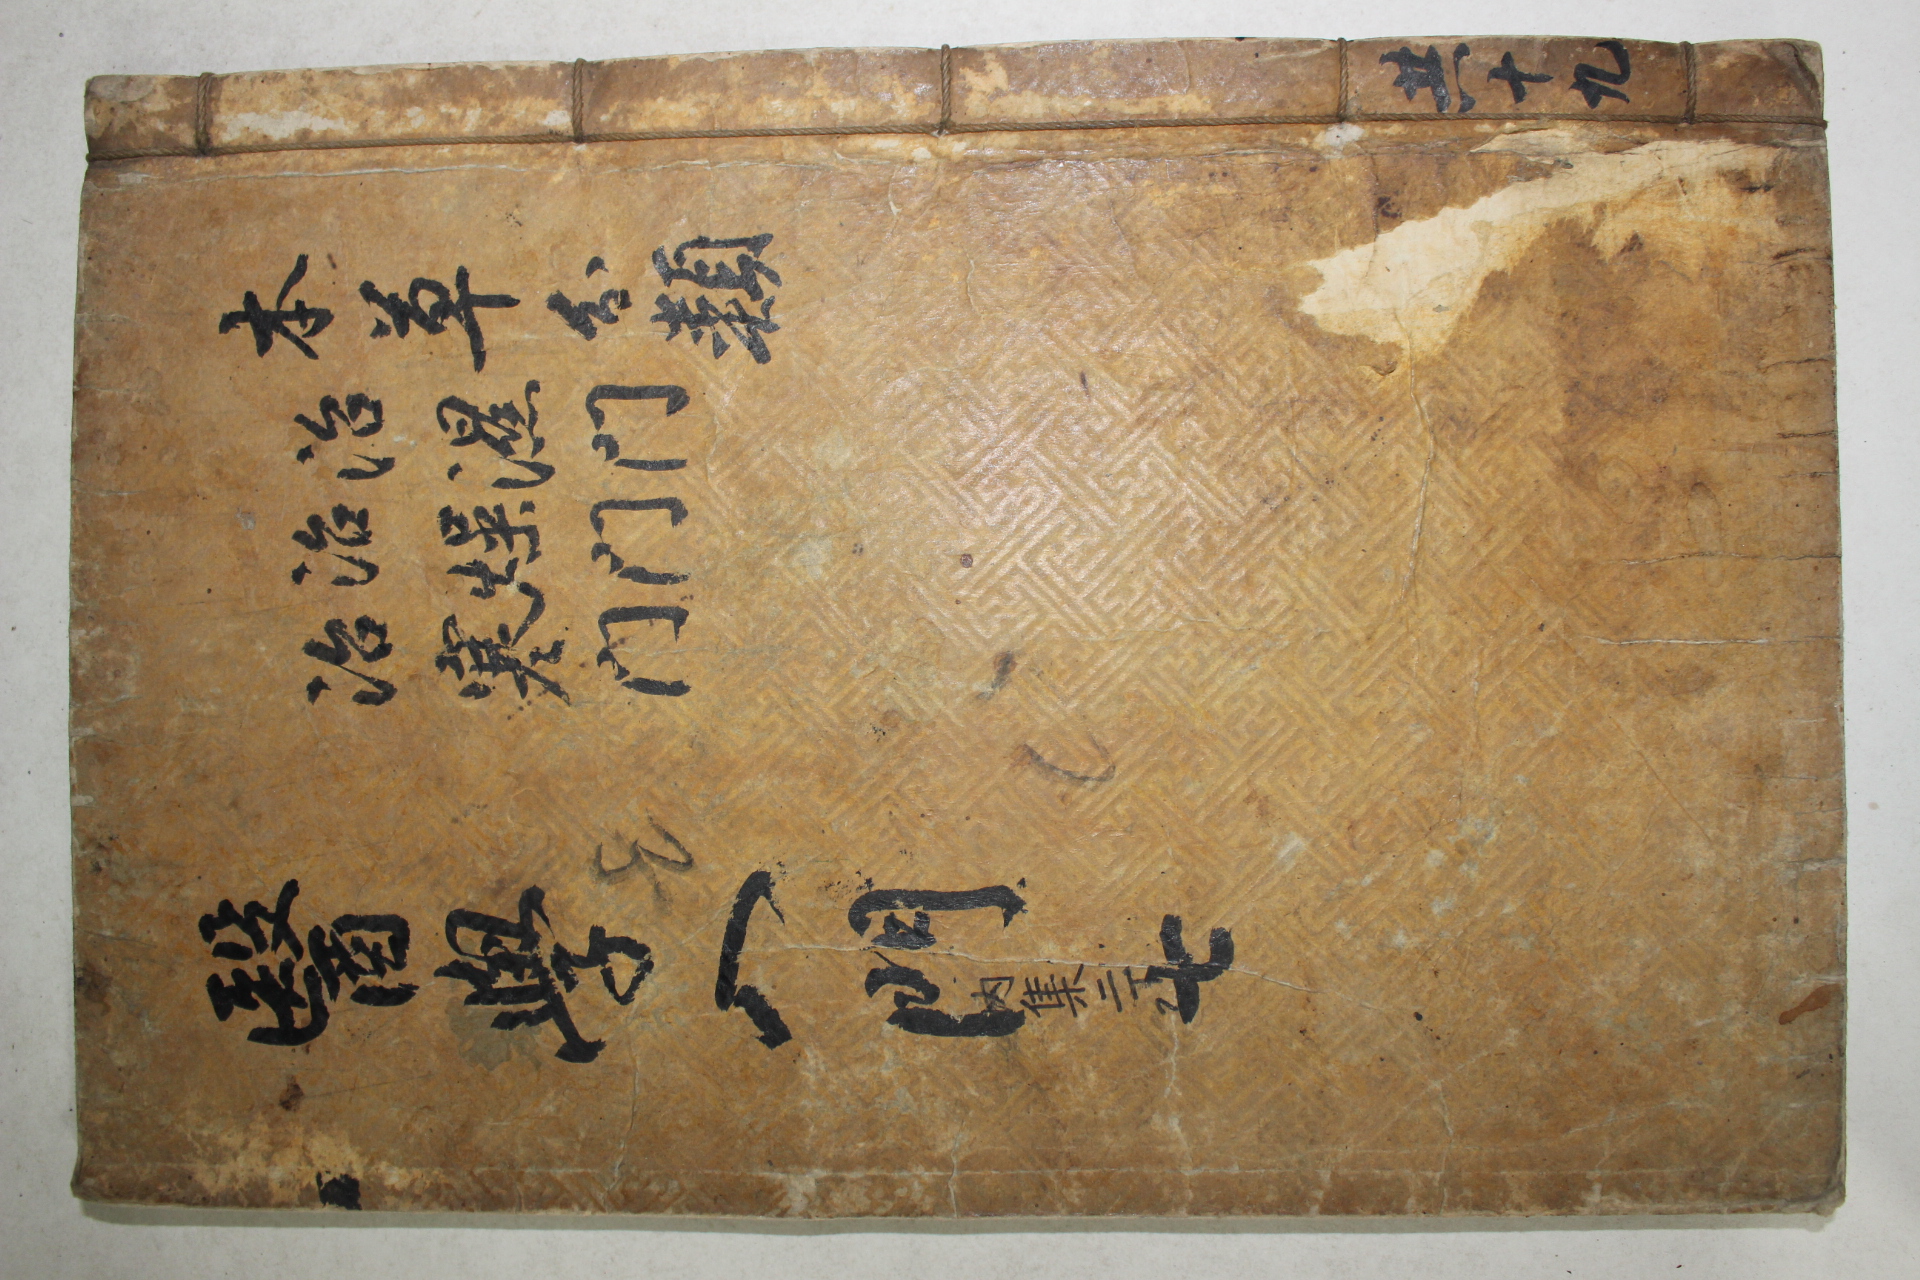 本草分類
治濕門
治燥門
治寒門
醫學入門
內集二
七
共十九